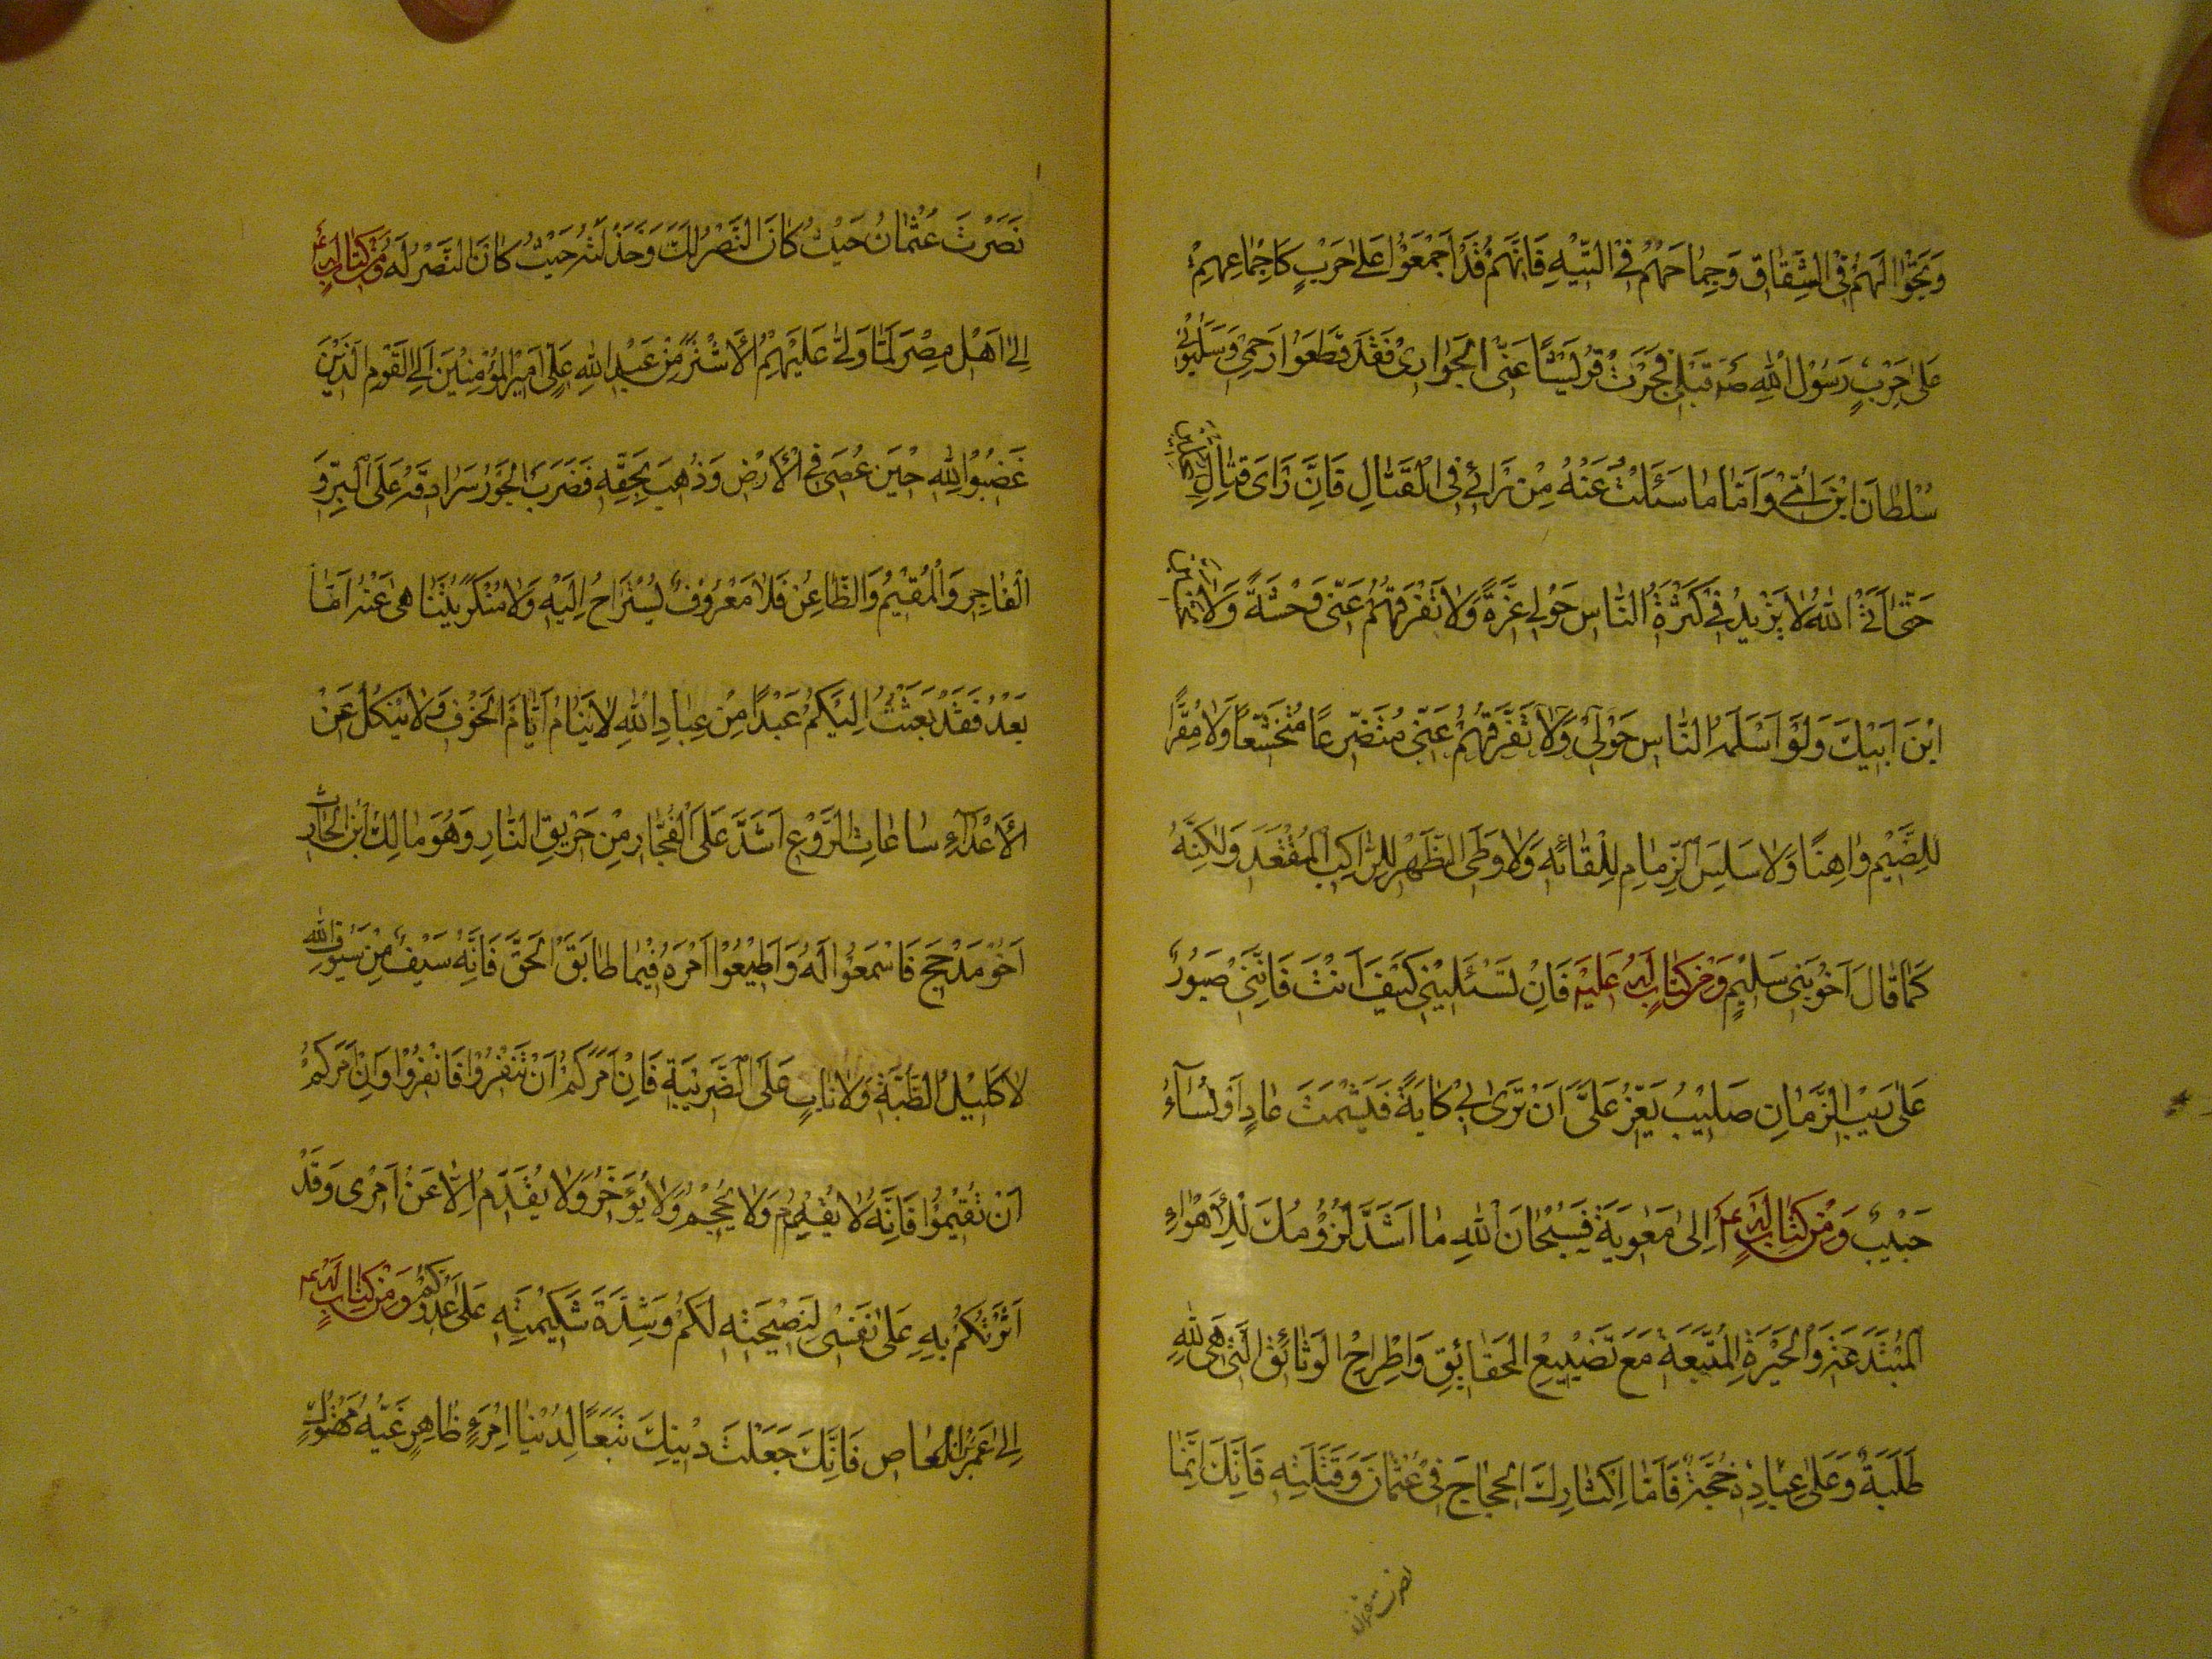 وَتَجَوُّالَهُمْ فِى الشِّقَاقِ وَجِمَاحَهُمْ فِى التّيْهِ فَاِنَّهُمْ قَدْ اَجْمَعُوْا عَلٰى حَرْبِى كَاِجْمَاعِهِمْ
عَلٰى حَرْبِ رَسُوْلِ اللّٰهِ صَ قَبْلِى فَجَزَتْ قُرَيْشًا عَنِّى الْجَوَازِىْ فَقَدْ قَطَعُوْا رَحِمِىْ وَسَلَبُوْنِىْ
سُلْطَانَ ابْنِ اُمِّىْ وَاَمَّا مَا سَئَلْتَ عَنْهُ مِنْ رَائِىْ فِى الْقِتَالِ فَاِنَّ رَاىِ قِتَالُ الْمُحِلِّيْنَ
حَتّٰى اَلْقَى اللّٰهَ لَا يَزِيْدُنِىْ كَثْرَةُ النَّاسِ حَوْلِىْ عِزَّةً وَلَا تَفَرُّقُهُمْ عَنِّى وَحْشَةً وَلَا تَحْسَبَنَّ
ابْنَ اَبِيْكَ وَلَوْ اَسْلَمَهُ النَّاسُ حَوْلِىْ وَلَا تَفَرُّقُهُمْ عَنِّى مُتَضَرِّعًا مُتَخَشِّعًا وَلَا مُقِرًّا
لِلضَّيْمِ وَاهِنًا وَلَا سَلِسَ الزِّمَامِ لِلْقَائِدِ وَلَا وَطِىَ الظَّهْرِ لِلرَّاكِبِ الْمُقْتَعِدِ وَلٰكِنَّهُ
كَمَا قَالَ اَخُوْ بَنِى سَلِيْمٍ وَمِنْ كِتَابٍ لَهُ عَلَيْهِ فَاِنْ تَسْئَلِيْنِى كَيْفَ اَنْتَ فَاِنَّنِى صَبُوْرٌ
عَلٰى رَيْبِ الزَّمَانِ صَلِيْبُ يَعِزُّ عَلَىَّ اَنْ تُرٰى بِىْ كَابَةً فَيَشْمَتَ عَادٍ اَوْ يُسَآءَ
حَبِيْبٌ وَمِنْ كِتَابٍ لَهُ عم اِلٰى مَعٰوِيَةَ فَسُبْحَانَ اللّٰهِ مَا اَشَدَّ لُزُوْمَكَ لِلْاَهْوَاءِ
الْمُبْتَدَعَةِ وَالْحَيْرَةِ الْمُتَّبَعَةِ مَعَ تَضْيِيْعِ الْحَقَائِقِ وَاطِّرَاحِ الْوَثَائِقِ الَّتِى هِىَ لِلّٰهِ
طَلِبَةٌ وَعَلٰى عِبَادِهِ حُجَّةٌ فَاَمَّا اِكْثَارُكَ الْحِجَاجَ فِىْ عُثْمَانَ وَقَتَلَتِهِ فَاِنَّكَ اِنَّمَا
نصرت عثمان
نَصَرْتَ عُثْمَانَ حَيْثُ كَانَ النَّصْرُ لَكَ وَخَذَلْتَهُ حَيْثُ كَانَ النَّصْرُ لَهُ وَمِنْ كِتَابٍ لَهُ عم
اِلٰى اَهْلِ مِصْرَ لَمَّا وَلّٰى عَلَيْهِمُ الْاَشْتَرَ مِنْ عَبْدِ اللّٰهِ عَلِىٍّ اَمِيْرِ الْمُؤْمِنِيْنَ اِلَى الْقَوْمِ الَّذِيْنَ
غَضِبُوْا لِلّٰهِ حِيْنَ عُصِىَ فِى الْاَرْضِ وَذُهِبَ بِحَقِّهِ فَضَرَبَ الْجَوْرُ سَرَادِقَهُ عَلَى الْبِرِّ وَ
الْفَاجِرِ وَالْمُقِيْمِ وَالظَّاعِنِ فَلَا مَعْرُوْفٌ يُسْتَرَاحُ اِلَيْهِ وَلَا مُنْكَرٌ يُتَنَاهٰى عَنْهُ اَمَّا
بَعْدُ فَقَدْ بَعَثْتُ اِلَيْكُمْ عَبْدًا مِنْ عِبَادِ اللّٰهِ لَا يَنَامُ اَيَّامَ الْخَوْفِ وَلَا يَنْكُلُ عَنِ
الْاَعْدَآءِ سَاعَاتِ الرَّوْعِ اَشَدَّ عَلَى الْفُجَّارِ مِنْ حَرِيْقِ النَّارِ وَهُوَ مَالِكُ ابْنُ الْحَارِثِ
اَخُوْ مَذْحِجٍ فَاسْمَعُوْا لَهُ وَاَطِيْعُوْا اَمْرَهُ فِيْمَا طَابَقَ الْحَقَّ فَاِنَّهُ سَيْفٌ مِنْ سُيُوْفِ اللّٰهِ
لَا كَلِيْلُ الظُّبَةِ وَلَا نَابِى عَلَى الضَّرِيْبَةِ فَاِنْ اَمَرَكُمْ اَنْ تَنْفِرُوْا فَانْفِرُوْا وَاِنْ اَمَرَكُمْ
اَنْ تُقِيْمُوْا فَاِنَّهُ لَا يُقْدِمُ وَلَا يُحْجِمُ وَلَا يُؤَخِّرُ وَلَا يُقَدِّمُ اِلَّا عَنْ اَمْرِى وَقَدْ
اٰثَرْتُكُمْ بِهِ عَلٰى نَفْسِى لِنَصِيْحَتِهِ لَكُمْ وَشِدَّةَ شَكِيْمَتِهِ عَلٰى عَدُوِّكُمْ وَمِنْ كِتَابٍ لَهُ عم
اِلٰى عَمْرِو بْنِ الْعَاصِ فَاِنَّكَ جَعَلْتَ دِيْنَكَ تَبَعًا لِدُنْيَا امْرِءٍ ظَاهِرٍ غَيُّهُ مَهْتُوْكٍ